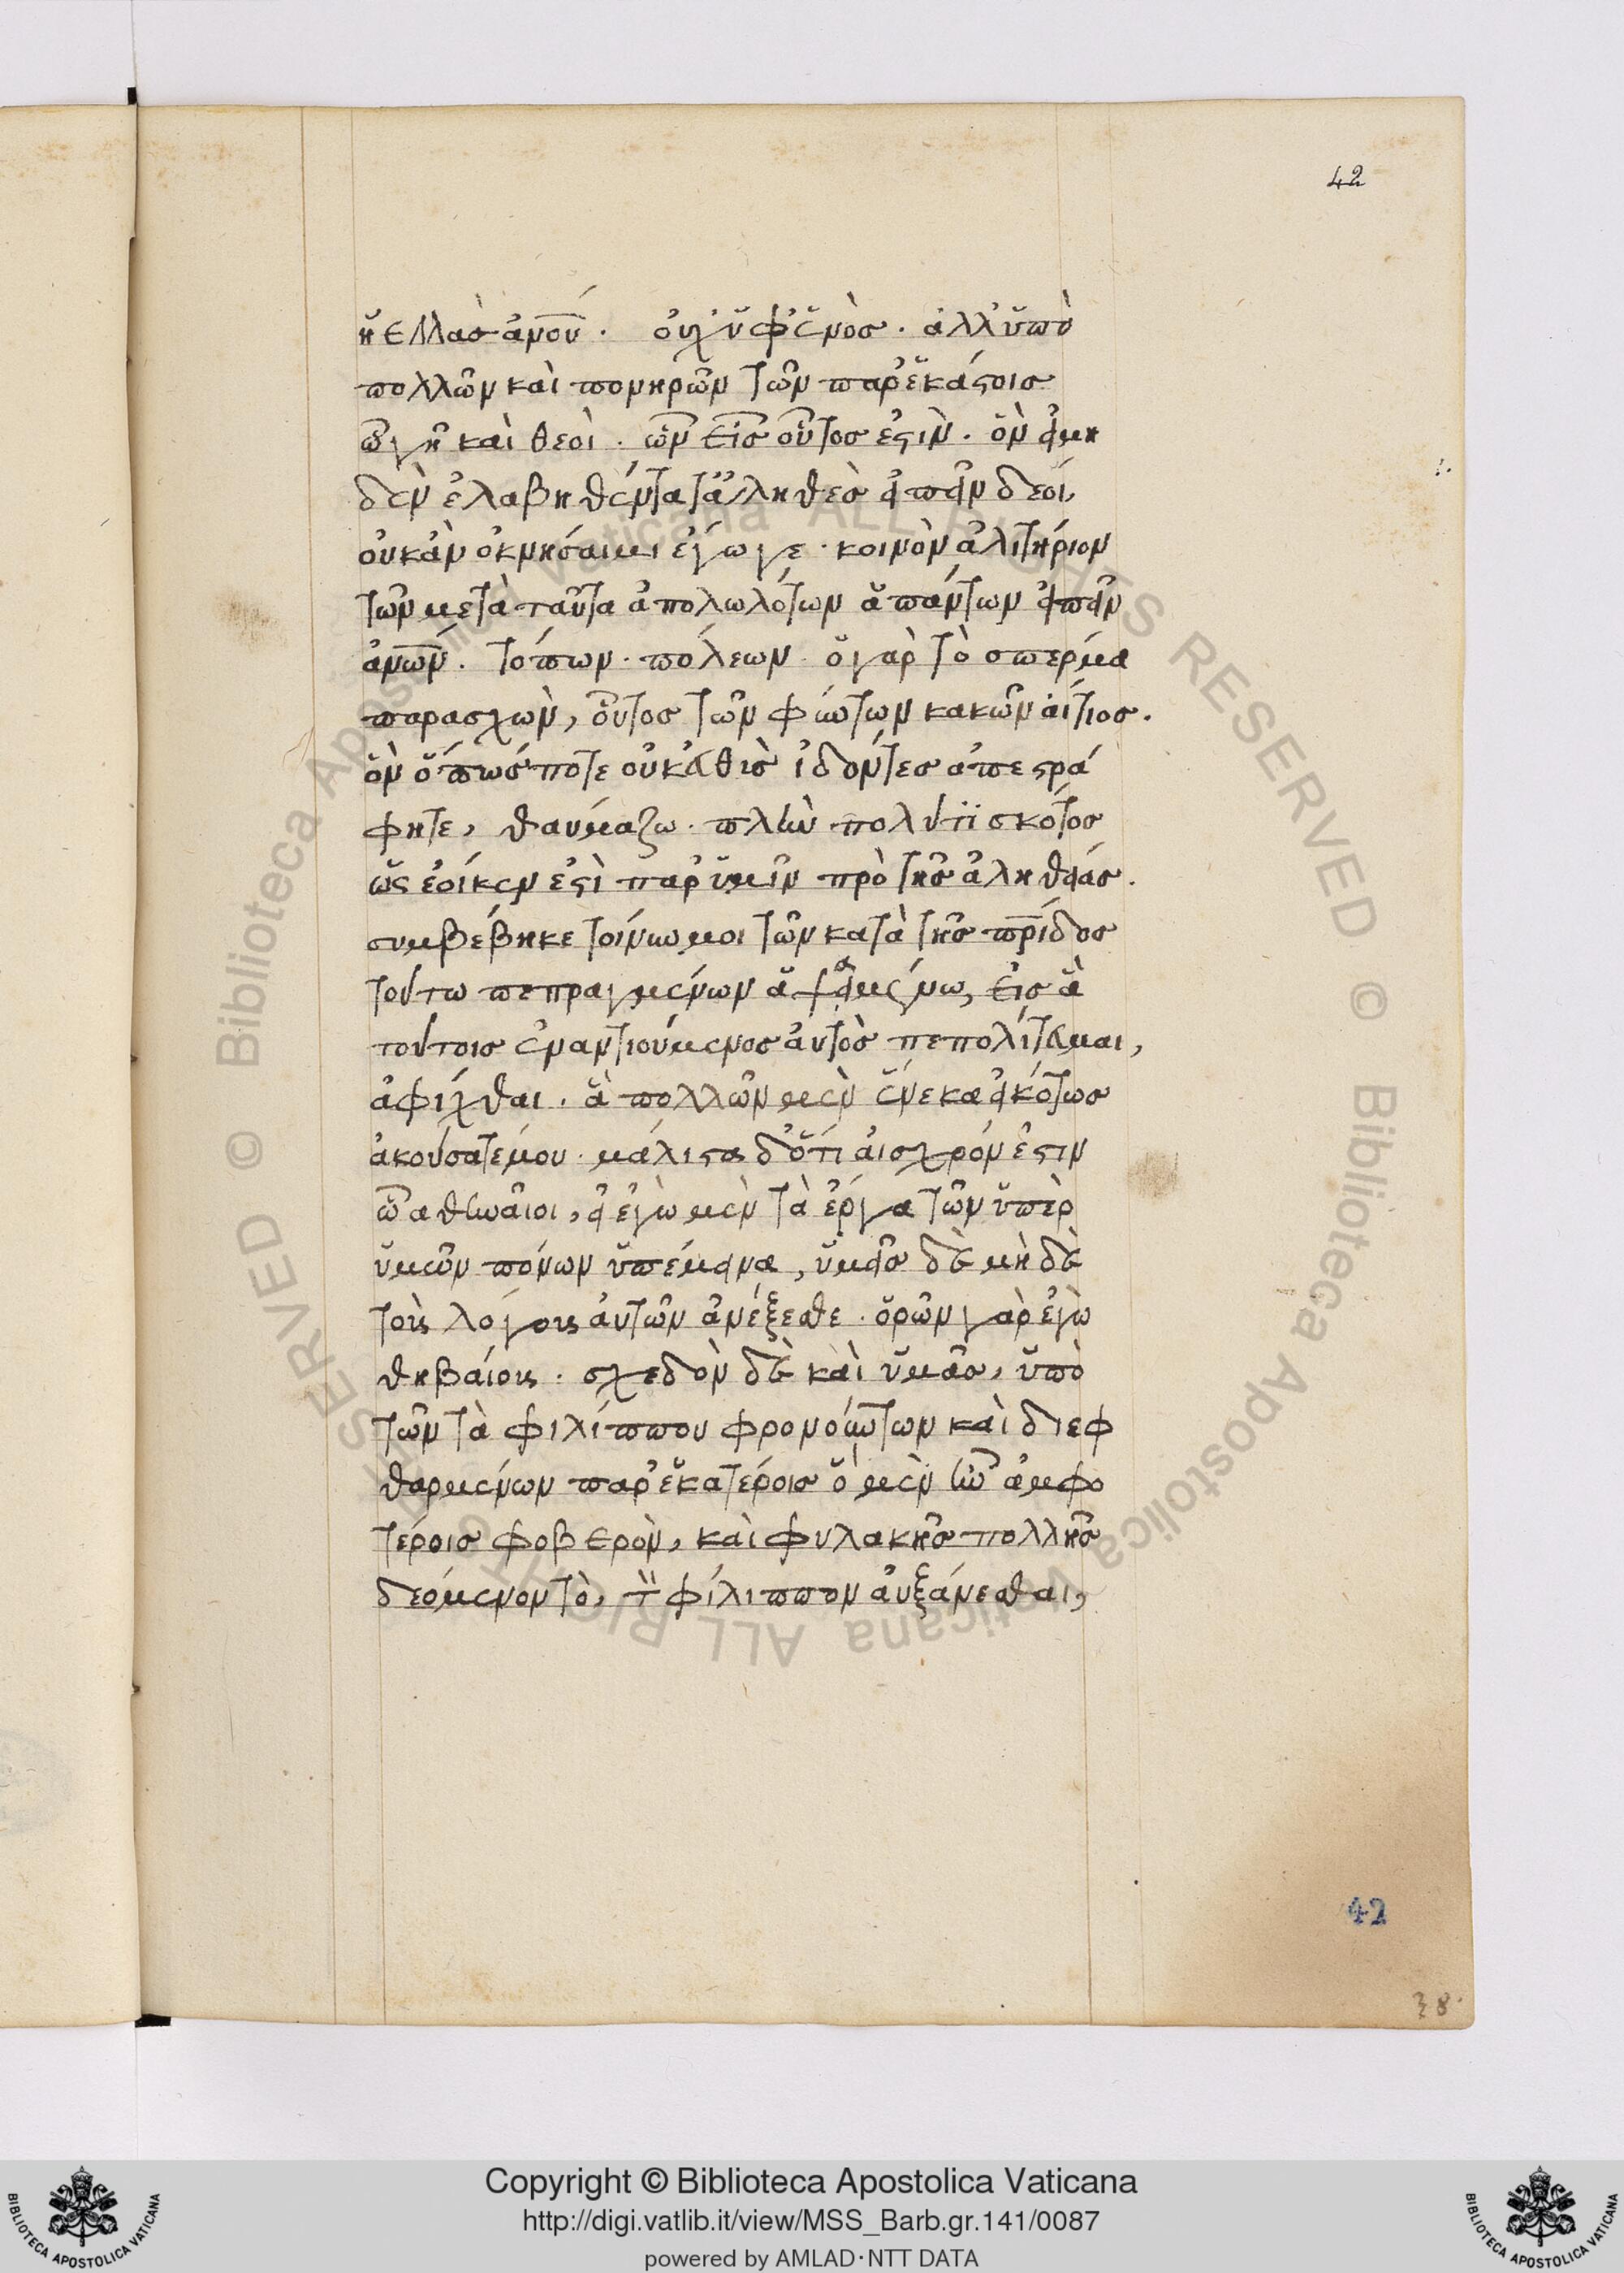 42
ἡ ἑλλὰς ἀνου. οὐχ ὑφ' ἑνὸς. ἀλλ' ὑπὸ
πολλῶν καὶ πονηρῶν τῶν παρ' ἑκάστοις
ὦ γῆ καὶ θεοὶ. ὧν εἷς οὗτος ἐστὶν. ὃν εἰ μη
δὲν ἐλαβηθέντα τἀληθὲς εἰπεῖν δέοι,
οὐκ ἂν ὀκνήσαιμι ἔγωγε. κοινὸν ἀλιτήριον
τῶν μετὰ ταῦτα ἀπολωλότων ἁπάντων εἰπεῖν
ἀνων. τόπων. πόλεων. ὁ γὰρ τὸ σπέρμα
παρασχὼν, οὗτος τῶν φύντων κακῶν αἴτιος.
ὃν ὅπως ποτε οὐκ εὐθὺς ἰδόντες ἀπεστρά
φητε, θαυμάζω. πλὴν πολύ τι σκότος
ὡς ἔοικεν ἐστὶ παρ' ὑμῖν πρὸ τῆς ἀληθείας.
συμβέβηκε τοίνυν μοι τῶν κατὰ τῆς πρίδος
τούτω πεπραγμένων ἁψαμένω, εἰς ἃ
τούτοις ἐναντιούμενος αὐτὸς πεπολίτευμαι,
ἀφίχθαι. ἃ πολλῶν μὲν ἕνεκα εἰκότως
ἀκούσατέ μου. μάλιστα δ' ὅτι αἰσχρόν ἐστιν
ὦ ἀθηναῖοι, εἰ ἐγὼ μὲν τὰ ἔργα τῶν ὑπὲρ
ὑμῶν πόνων ὑπέμεινα, ὑμεῖς δὲ μὴ δὲ
τοὺς λόγους αὐτῶν ἀνέξεσθε. ὁρῶν γὰρ ἐγὼ
θηβαίους. σχεδὸν δὲ καὶ ὑμᾶς, ὑπὸ
τῶν τὰ φιλίππου φρονούντων καὶ διεφ
θαρμένων παρ' ἑκατέροις ὃ μὲν ἦν ἀμφο
τέροις φοβερὸν, καὶ φυλακῆς πολλῆς
δεόμενον τὸ, τ̀ φίλιππον αὐξάνεσθαι,
42
38
© Biblioteca Apostolica Vaticana ALL RIGHTS RESERVED © Biblioteca Apostolica Vaticana ALL RIGHTS RESERVED
BIBLIOTECA APOSTOLICA VATICANA
Copyright © Biblioteca Apostolica Vaticana
http://digi.vatlib.it/view/MSS_Barb.gr.141/0087
powered by AMLAD·NTT DATA
BIBLIOTECA APOSTOLICA VATICANA